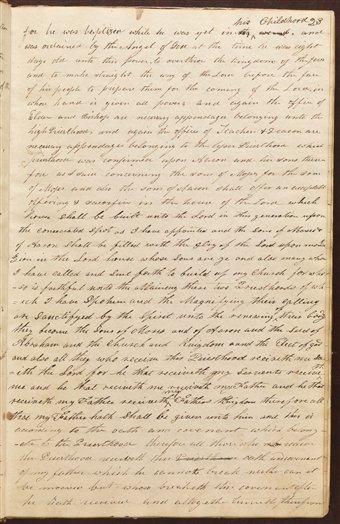 his Childhood 28
for he was baptised while he was yet in and
was ordained by the Angel of God at the time he was eight
days old unto this power to overthrow the kingdom of the Jews
and to make straight the way of the Lord before the face
of his people to prepare them for the coming of the Lord in
whose hand is given all power and again the office of
Elder and Bishop are necessary appendages belonging unto the
high Priesthood, and again the office of Teacher & Deacon are
necessary appendages belonging to the lesser Priesthood which
Priesthood was confirmed upon Aaron and his sons there
fore as I said concerning the sons of Moses for the sons
of Moses and also the sons of Aaron shall offer an acceptable
offering & sacrifice in the house of the Lord which
House shall be built unto the Lord in this generation upon
the consecrated Spot as I have appointed and the Sons of Moses &
of Aaron shall be filled with the glory of the Lord upon mount
Zion in the Lord house whose Sons are ye and also many whom
I have called and Sent forth to build up my Church for whoso
is faithful unto the attaining these two Priesthoods of wh
ich I have Spoken and the Magnifying their calling
are Sanctified by the Spirit unto the renewing their bodies
they become the Sons of Moses and of Aaron and the Seed of
Abraham and the Church and Kingdom and the Elect of god
and also all they who receive this Priesthood receiveth me sa
ith the Lord for he that receiveth my Servants receiveth
me and he that receiveth me receiveth my Father and he that
receiveth my Father receiveth my Father Kingdom therefore all
that my Father hath Shall be given unto him and this is
according to the oath and covenant which belong
eth to the Priesthood therefore all those who receive
the Priesthood receiveth this oath and covenant
of my father which he cannot break neither can it
be moved but whoso breaketh this covenant after
he hath received and altogether turneth therefrom